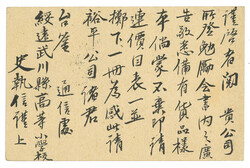 謹啓者閱 貴公司
所登勉勵会書内之廣
告敬悉備有貨品樣
本倘蒙不棄即請
連價目表一並
擲下一冊爲感此請
裕平公司諸君
台鉴 通信處
綏遠武川縣高等小學校
史執信謹上